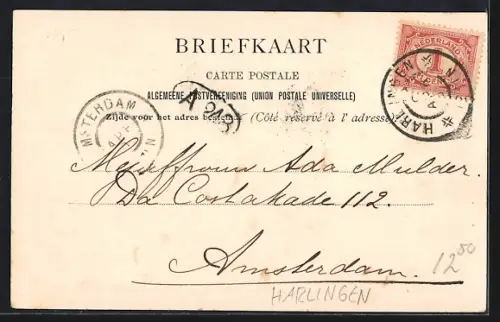 BRIEFKAART
CARTE POSTALE
ALGEMEENE POSTVEREENIGING (UNION POSTALE UNIVERSELLE)
Zijde voor het adres bestemd. (Côté réservé à l'adresse)
NEDERLAND
1
HARLINGEN
AMSTERDAM
A 243
Mejuffrouw Ada Mulder.
Da Costakade 112.
Amsterdam.
12 50
HARLINGEN